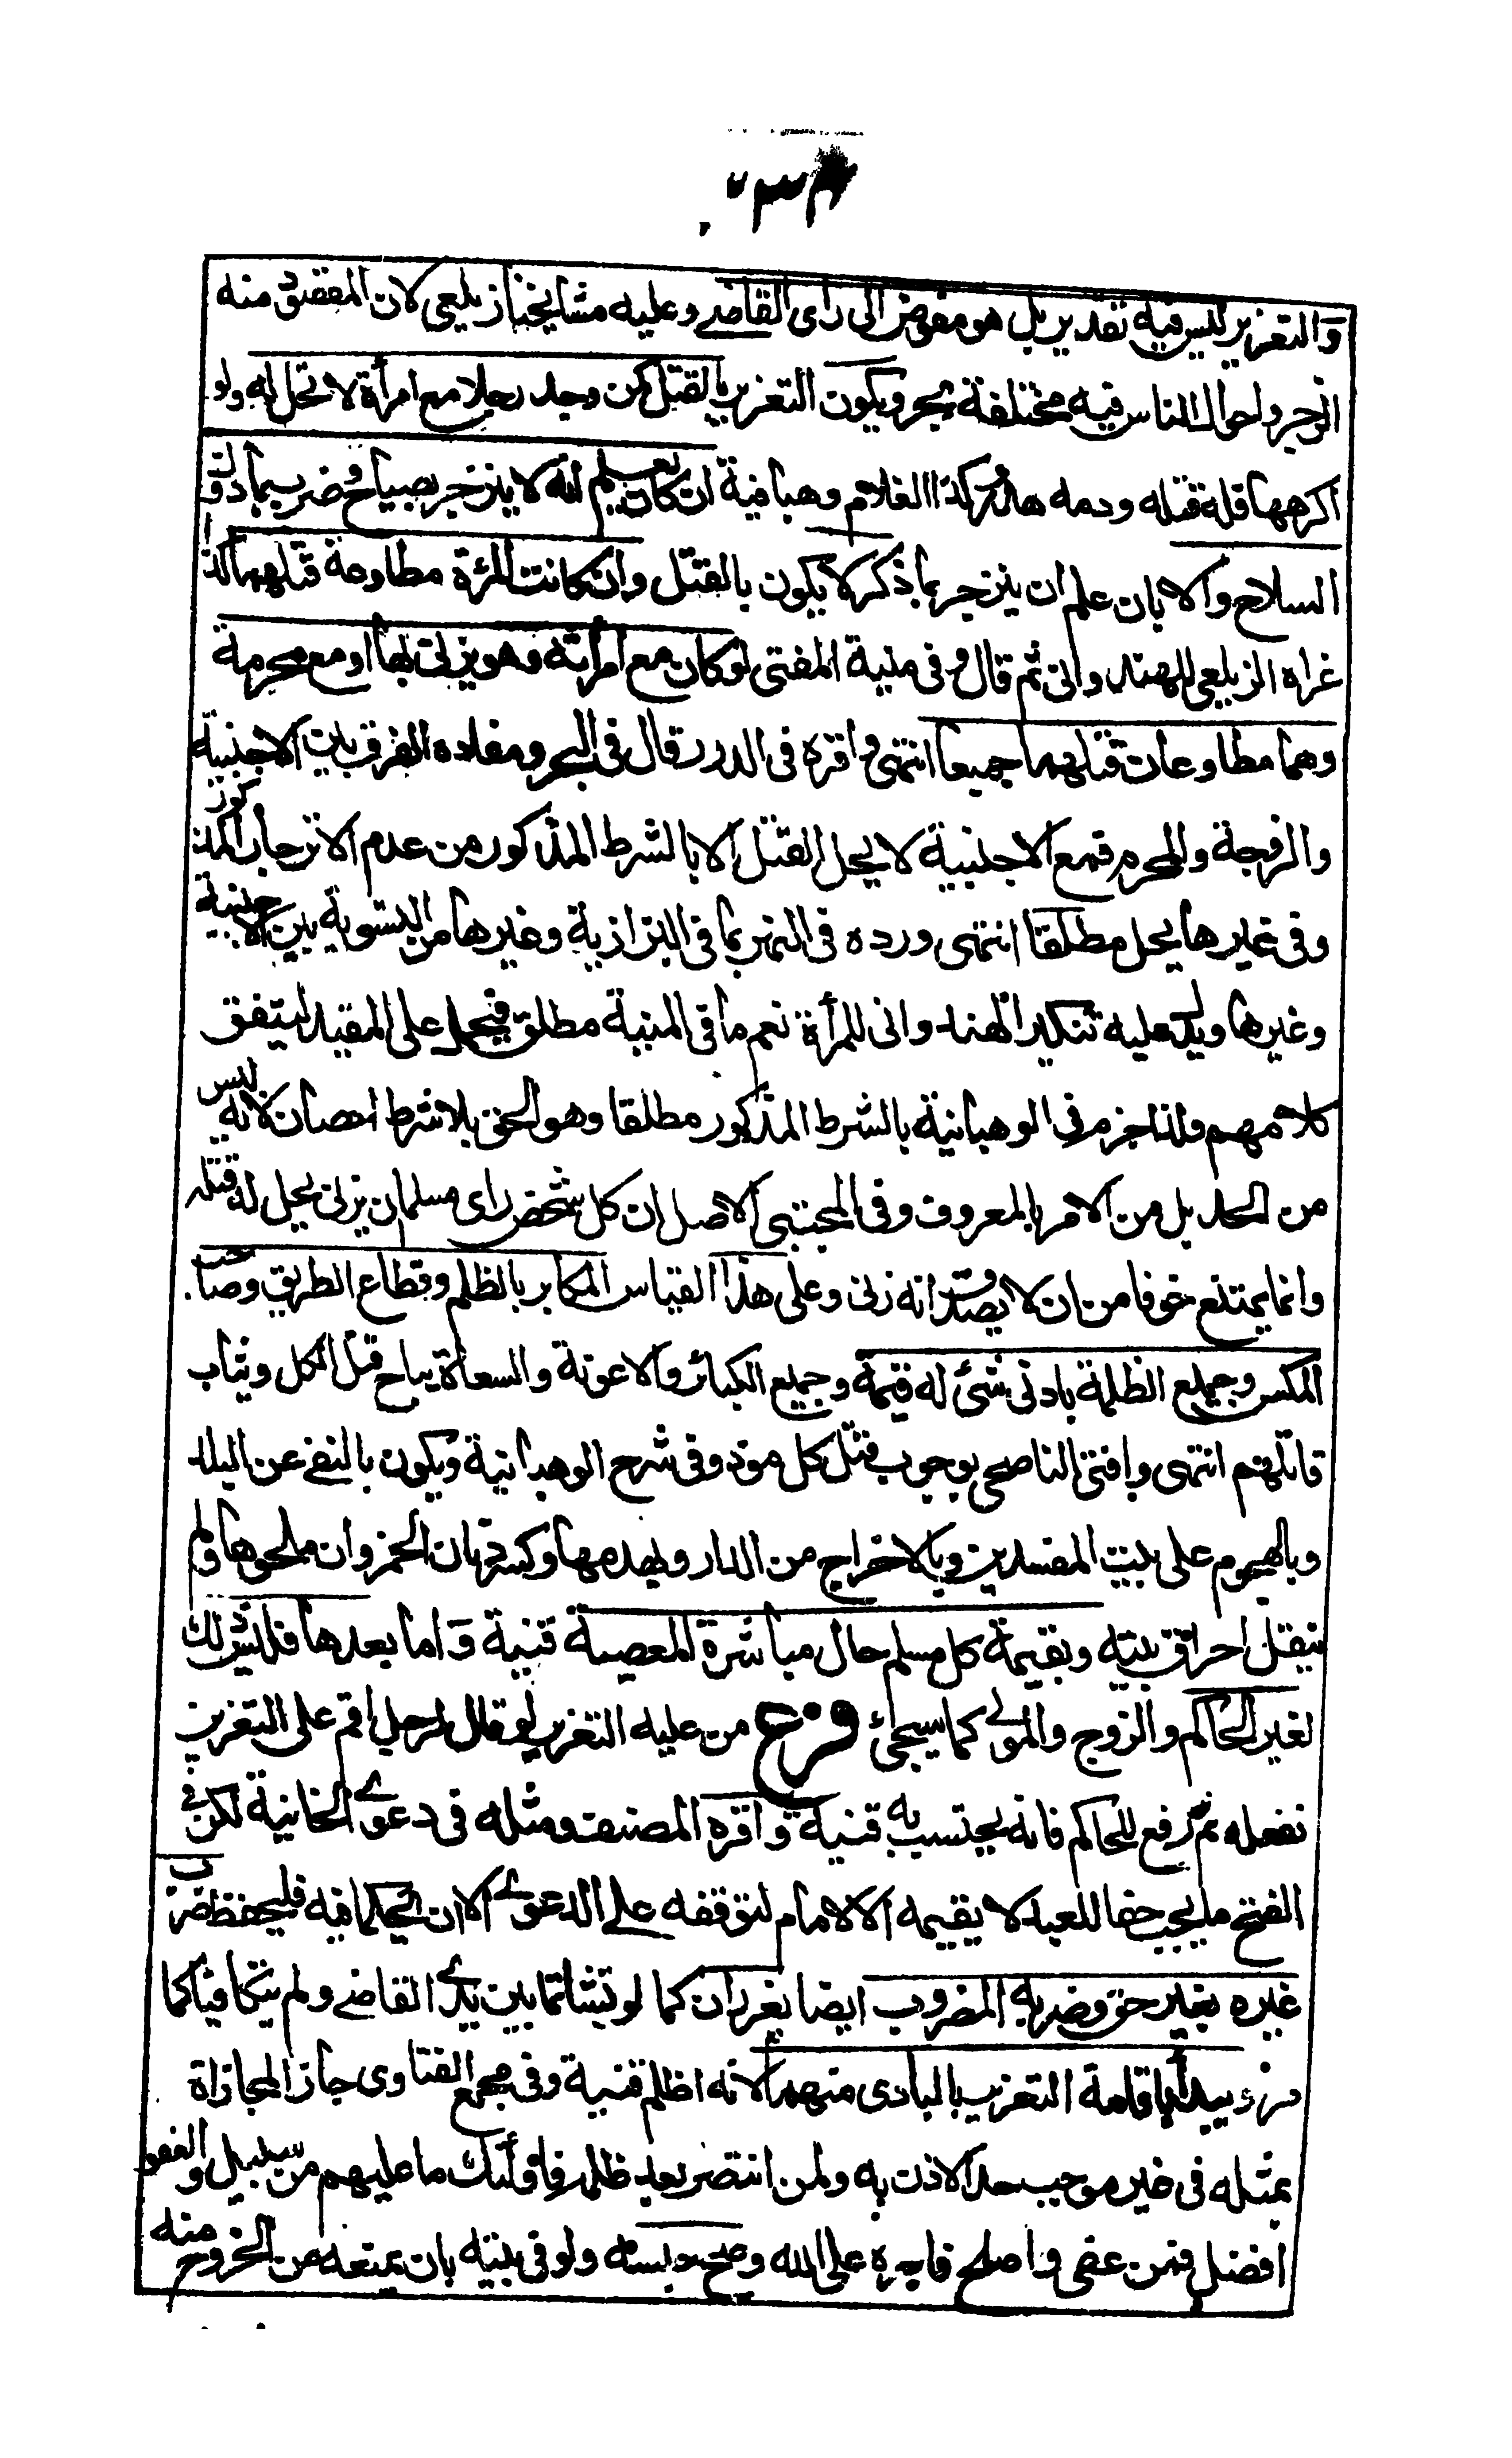 والتعزير ليس فيه تقدير بل هو مفوض الى راى القاضى وعليه مشايخنا زيلعى لان المقصود منه
الزجر واحوال الناس فيه مختلفة بحر ويكون التعزير بالقتل كمن وجد رجلا مع امرأة لا تحل له ولو
اكرهها فله قتله ودمه هدر وكذا الغلام وهبانية ان كان يعلم انه لا ينزجر بصياح وضرب بما دون
السلاح والا بان علم ان ينزجر بما ذكر لا يكون بالقتل وان كانت المرٔة مطاوعة قتلهما كذا
غراه الزيلعى للهندوانى ثم قال وفى منية المفتى لو كان مع امرأته وهو يزنى بها او مع محرمة
وهما مطاوعان قتلهما جميعا انتهى واقره فى الدرر قال فى البحر ومفاده الفرق بين الاجنبية
والزوجة والمحرم فمع الاجنبية لا يحل القتل الا بالشرط المذكور من عدم الانزجار المذكور
وفى غيرها يحل مطلقا انتهى ورده فى النهر بما فى البزازية وغيرها من التسوية بين الاجنبية
وغيرها ويدل عليه تنكير الهندوانى للمرأة نعم ما فى المنية مطلق فيحمل على المقيد ليتفق
كلامهم ولذا جزم فى الوهبانية بالشرط المذكور مطلقا وهو الحق بلا شرط احصان لانه ليس
من الحد بل من الامر بالمعروف وفى المجتبى الاصل ان كل شخص راى مسلما يزنى يحل له قتله
وانما يمتنع خوفا من ان لا يصدق انه زنى وعلى هذا القياس المكابر بالظلم وقطاع الطريق وصاحب
المكس وجميع الظلمة بادنى شئ له قيمة وجميع الكبائر والاعونة والسعاة يباح قتل الكل ويثاب
قاتلهم انتهى وافتى الناصحى بوجوب قتل كل موذ وفى شرح الوهبانية ويكون بالنفى عن البلد
وبالهجوم على بيت المفسدين وبالاخراج من الدار وبهدمها وكسر دنان الخمر وان ملحوها ولم
ينقل احراق بيته ويقيمه كل مسلم حال مباشرة المعصية قنية وَاما بعدها فليس ذلك
لغير الحاكم والزوج والمولى كما سيجئ فرع من عليه التعزير لو قال لرجل اقم على التعزير
نفعله ثم رفع للحاكم فانه يحتسب به قنية واقره المصنف ومثله فى دعوى الخانية لكن فى
الفتح ما يجب حقا للعبد لا يقيمه الا الامام لتوقفه على الدعوى الا ان يحكما فيه فليحفظ ضرب
غيره بغير حق وضربه المضروب ايضا يعزران كما لو تشاتما بين يدى القاضى ولم يتكافيا كما
مر ويبدأ باقامة التعزير بالبادى منهما لانه اظلم قنية وفى مجمع الفتاوى جاز المجازاة
بمثله فى غير موجب حد للاذن به ولمن انتصر بعد ظلمه فاولٔىك ما عليهم من سبيل والعفو
افضل فمن عفى واصلح فاجره على الله وصح حبسه ولو فى بيته بان يمنعه من الخروج منه